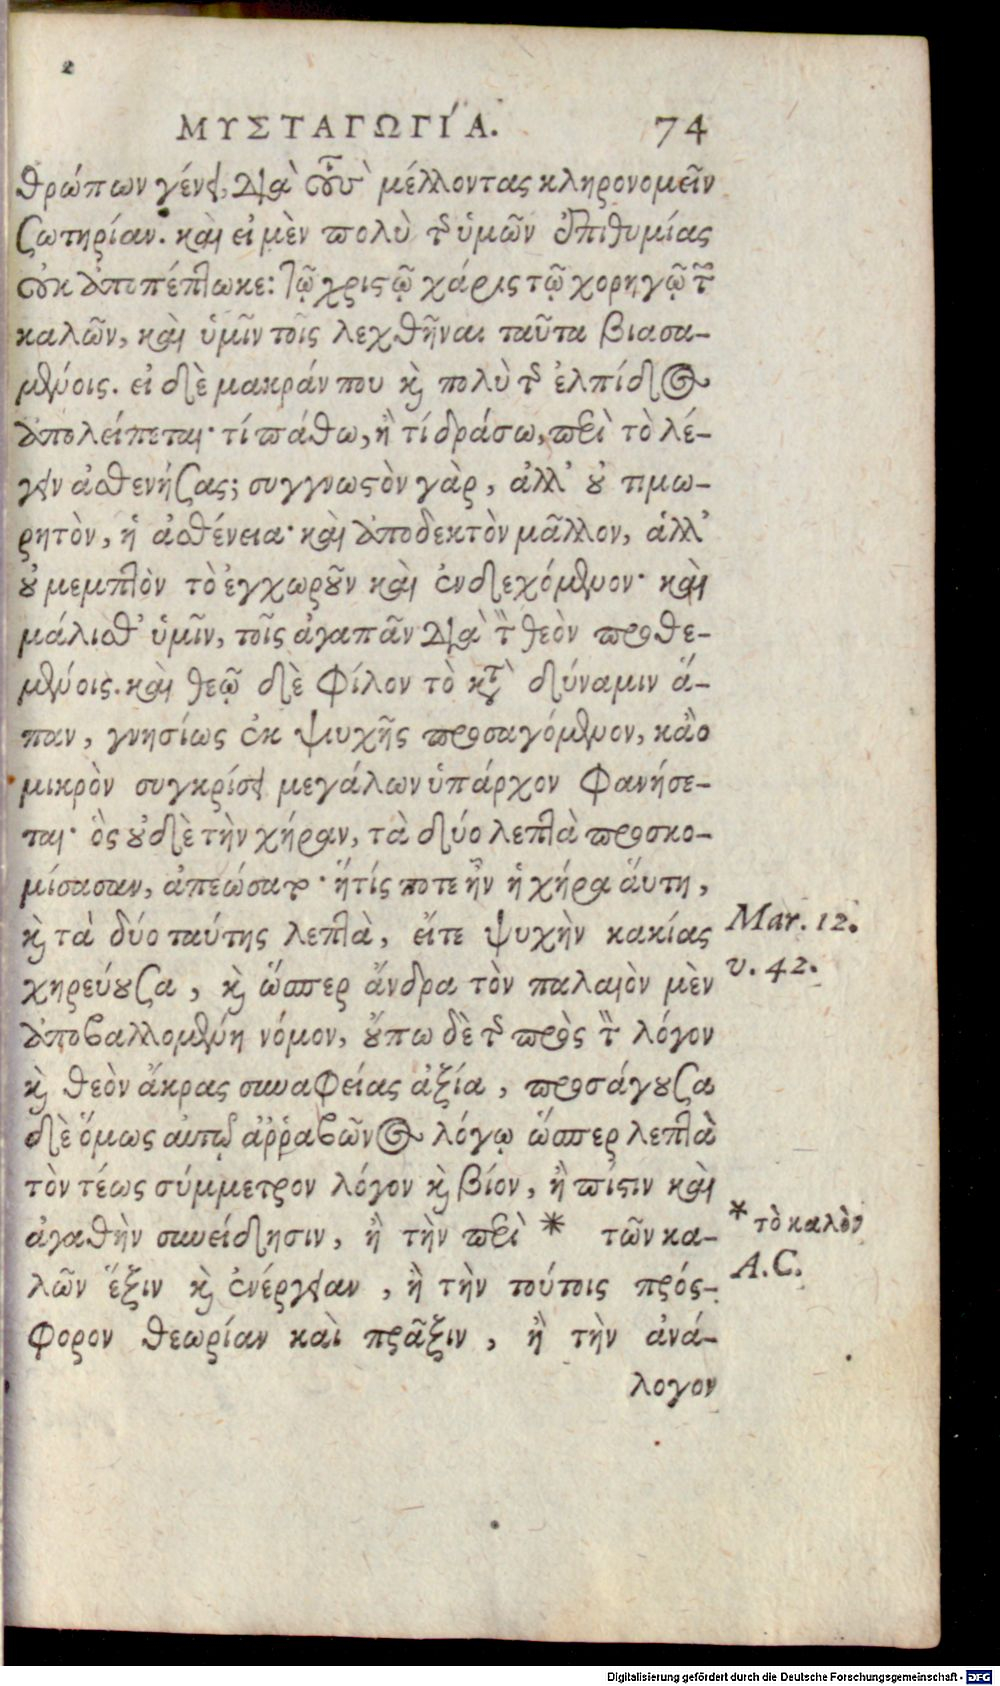 2
ΜΥΣΤΑΓΩΓΊΑ. 74
θρώπων γένει, διὰ τοὺς μέλλοντας κληρονομεῖν
ζωτηρίαν. καὶ εἰ μὲν πολὺ τῆς ὑμῶν ἐπιθυμίας
οὐκ ἀποπέπτωκε: τῷ χριστῷ χάρις τῷ χορηγῷ τῶν
καλῶν, καὶ ὑμῖν τοῖς λεχθῆναι ταῦτα βιασα-
μένοις. εἰ δὲ μακράν που καὶ πολὺ τῆς ἐλπίδος
ἀπολείπεται· τί πάθω, ἢ τί δράσω, περὶ τὸ λέ-
γειν ἀσθενήσας; συγγνωστὸν γὰρ, ἀλλ' οὐ τιμω-
ρητὸν, ἡ ἀσθένεια· καὶ ἀποδεκτὸν μᾶλλον, ἀλλ'
οὐ μεμπτὸν τὸ ἐγχωροῦν καὶ ἐνδεχόμενον· καὶ
μάλισθ' ὑμῖν, τοῖς ἀγαπᾶν διὰ τὸν θεὸν προθε-
μένοις. καὶ θεῷ δὲ φίλον τὸ κατὰ δύναμιν ἅ-
παν, γνησίως ἐκ ψυχῆς προσαγόμενον, κἂν
μικρὸν συγκρίσει μεγάλων ὑπάρχον φανήσε-
ται· ὃς οὐδὲ τὴν χήραν, τὰ δύο λεπτὰ προσκο-
μίσασαν, ἀπεώσατο· ἥτίς ποτε ἦν ἡ χήρα ἅυτη,
καὶ τὰ δύο ταύτης λεπτὰ, εἴτε ψυχὴν κακίας
χηρεύουσα, καὶ ὥσπερ ἄνδρα τὸν παλαιὸν μὲν
ἀποβαλλομένη νόμον, οὔπω δὲ τῆς πρὸς τὸν λόγον
καὶ θεὸν ἄκρας συναφείας ἀξία, προσάγουσα
δὲ ὅμως αὐτῷ ἀῤῥαβῶνος λόγῳ ὥσπερ λεπτὰ
τὸν τέως σύμμετρον λόγον καὶ βίον, ἢ πίστιν καὶ
ἀγαθὴν συνείδησιν, ἢ τὴν περὶ * τῶν κα-
λῶν ἕξιν καὶ ἐνέργειαν, ἢ τὴν τούτοις πρόσ-
φορον θεωρίαν καὶ πρᾶξιν, ἢ τὴν ἀνά-
λογον
Mar. 12.
v. 42.
* τὸ καλὸν
A.C.
Digitalisierung gefördert durch die Deutsche Forschungsgemeinschaft - DFG